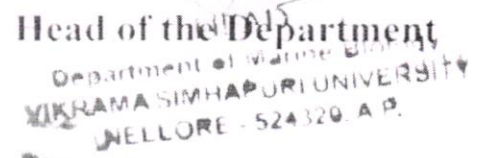 Head of the Department
Department of Marine Biology
VIKRAMA SIMHAPURI UNIVERSITY
NELLORE - 524320. A.P.